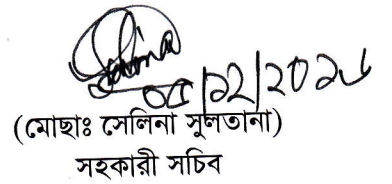 Selina
০৫/১২/২০১৮
(মোছাঃ সেলিনা সুলতানা)
সহকারী সচিব